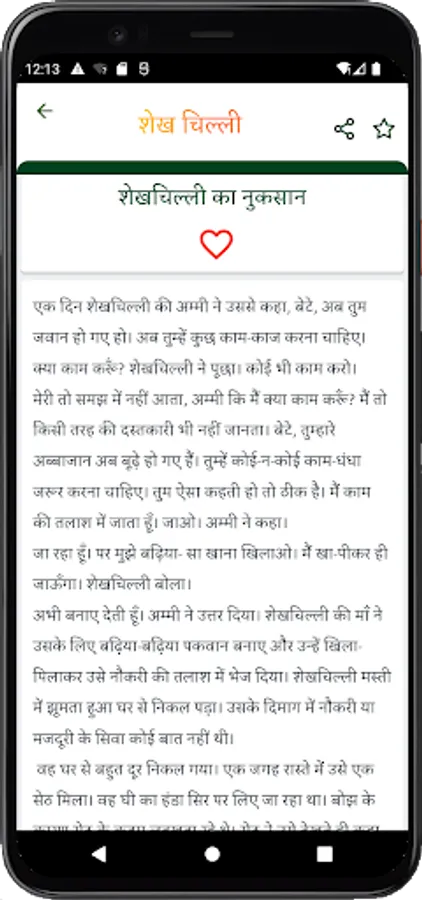 12:13
शेख चिल्ली
शेखचिल्ली का नुकसान
एक दिन शेखचिल्ली की अम्मी ने उससे कहा, बेटे, अब तुम
जवान हो गए हो। अब तुम्हें कुछ काम-काज करना चाहिए।
क्या काम करूँ? शेखचिल्ली ने पूछा। कोई भी काम करो।
मेरी तो समझ में नहीं आता, अम्मी कि मैं क्या काम करूँ? मैं तो
किसी तरह की दस्तकारी भी नहीं जानता। बेटे, तुम्हारे
अब्बाजान अब बूढ़े हो गए हैं। तुम्हें कोई-न-कोई काम-धंधा
जरूर करना चाहिए। तुम ऐसा कहती हो तो ठीक है। मैं काम
की तलाश में जाता हूँ। जाओ। अम्मी ने कहा।
जा रहा हूँ। पर मुझे बढ़िया- सा खाना खिलाओ। मैं खा-पीकर ही
जाऊँगा। शेखचिल्ली बोला।
अभी बनाए देती हूँ। अम्मी ने उत्तर दिया। शेखचिल्ली की माँ ने
उसके लिए बढ़िया-बढ़िया पकवान बनाए और उन्हें खिला-
पिलाकर उसे नौकरी की तलाश में भेज दिया। शेखचिल्ली मस्ती
में झूमता हुआ घर से निकल पड़ा। उसके दिमाग में नौकरी या
मजदूरी के सिवा कोई बात नहीं थी।
वह घर से बहुत दूर निकल गया। एक जगह रास्ते में उसे एक
सेठ मिला। वह घी का हंडा सिर पर लिए जा रहा था। बोझ के